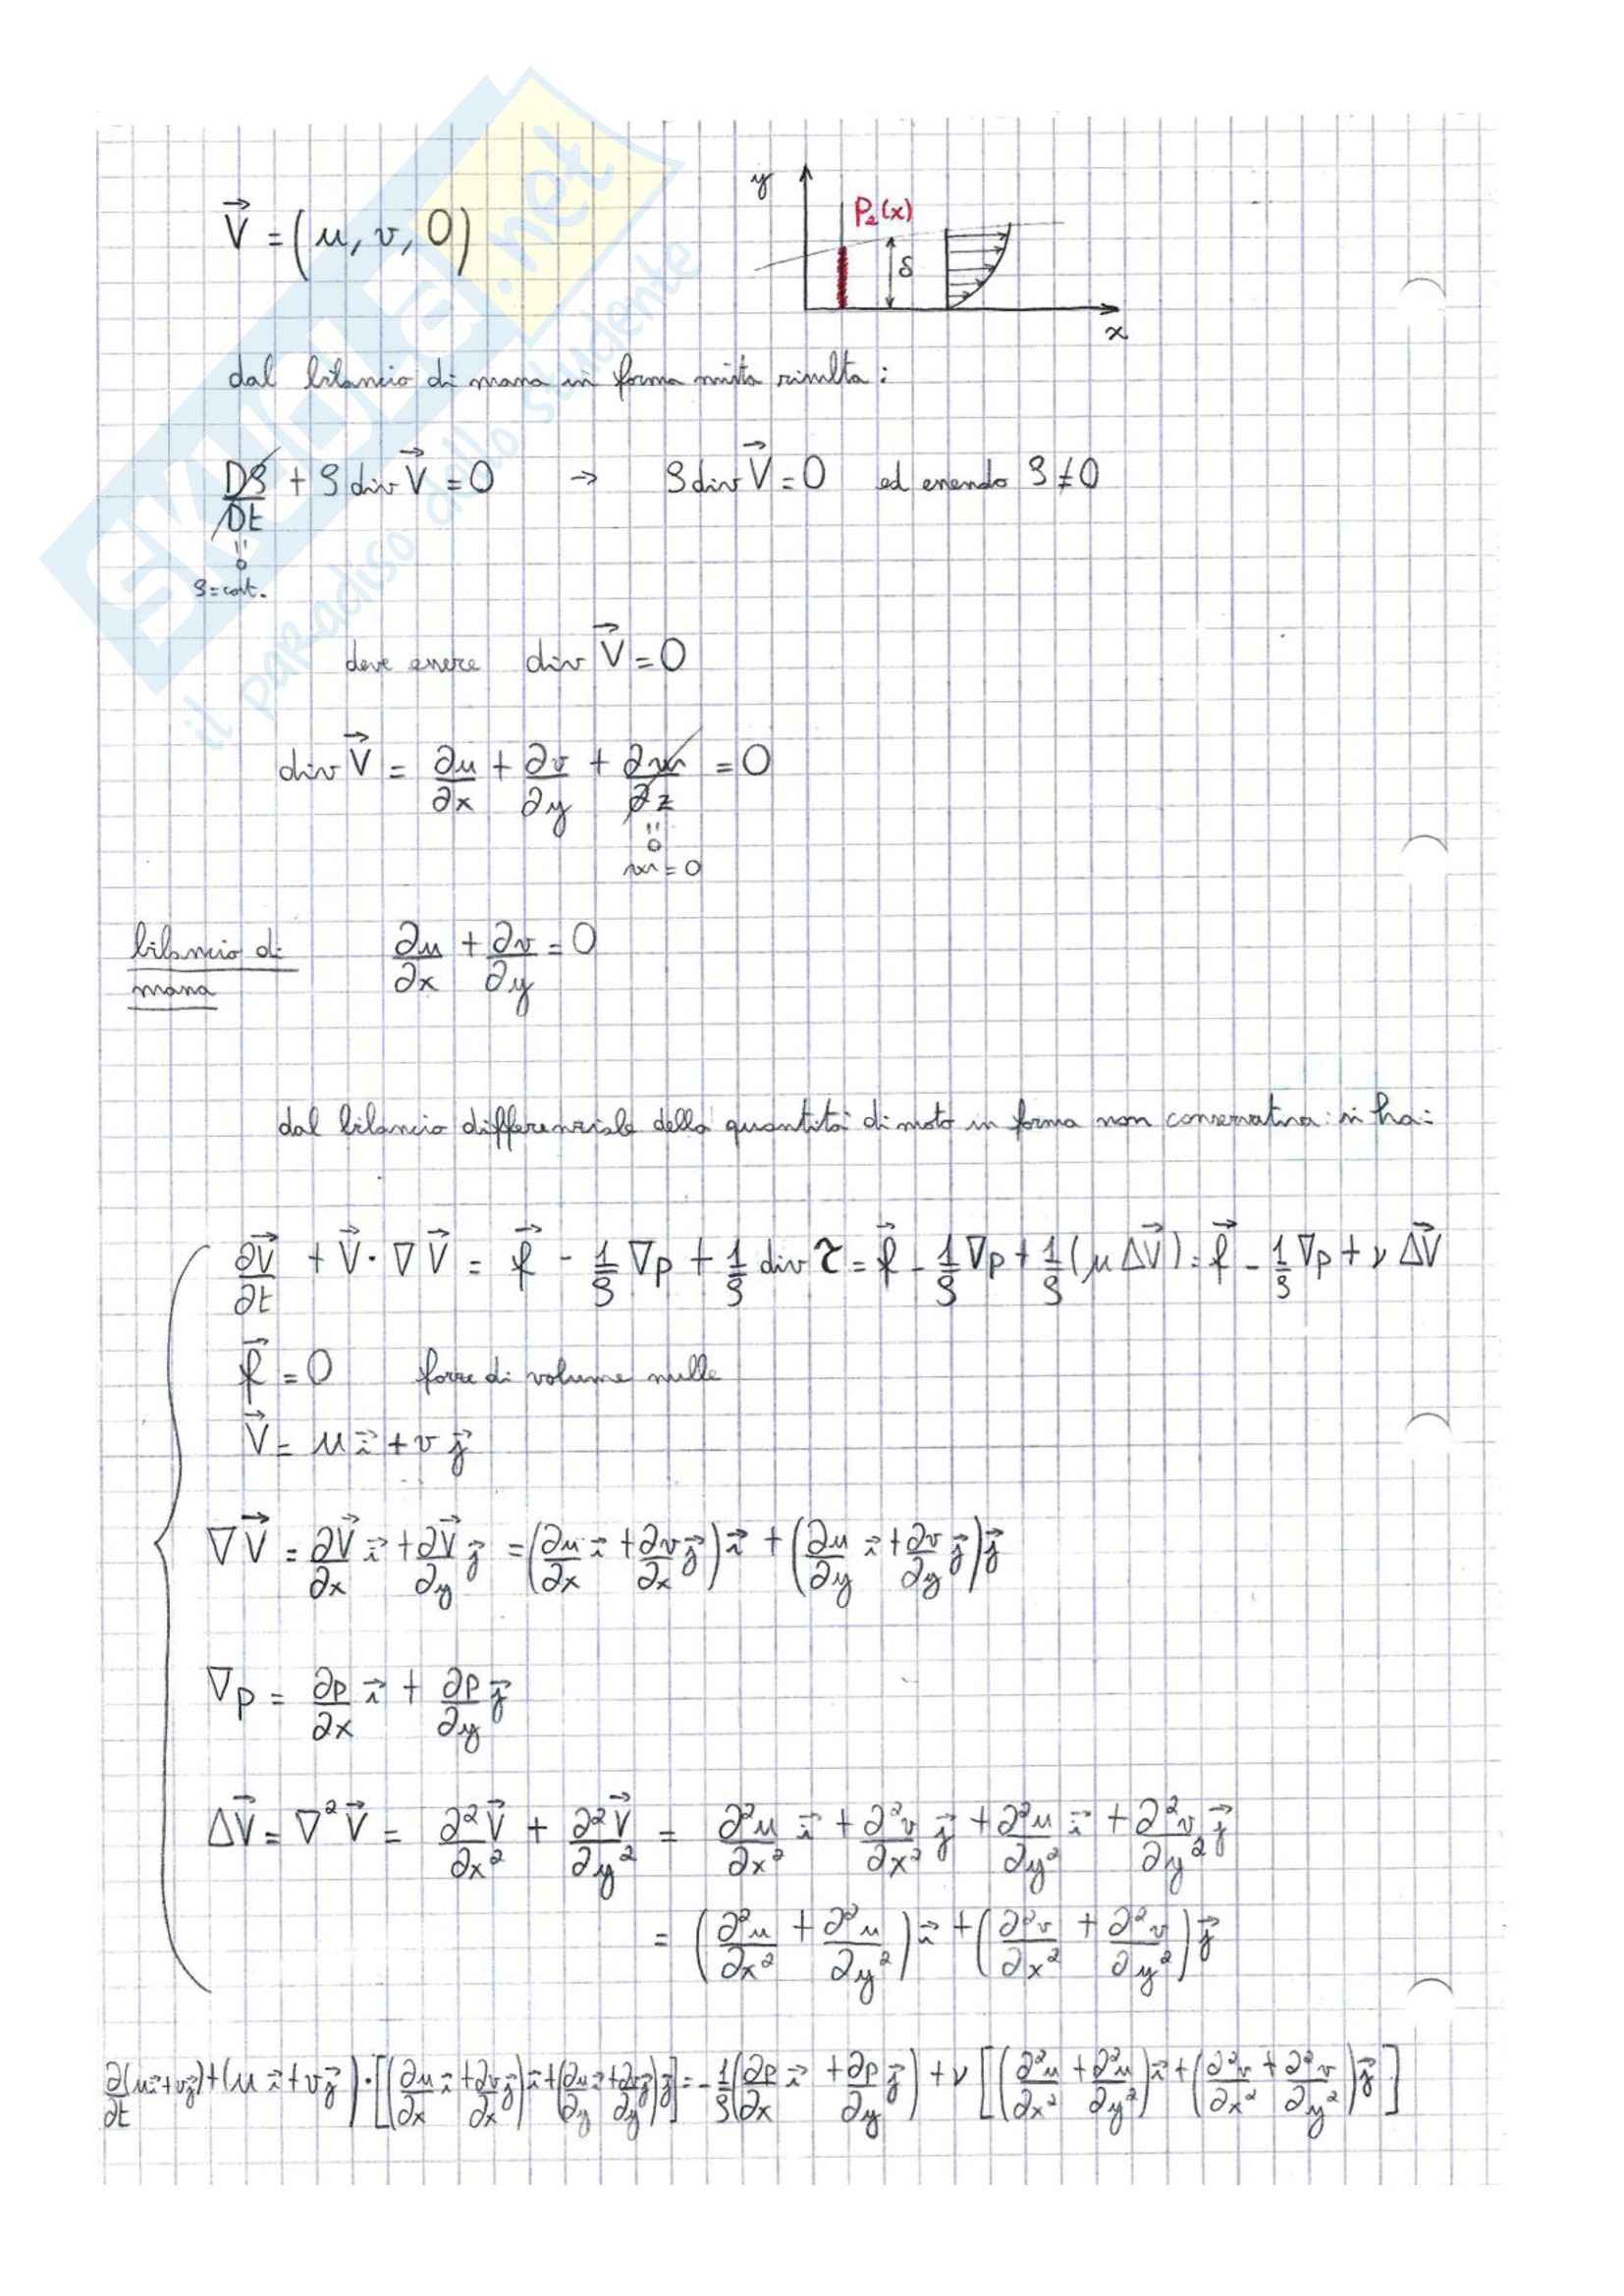 y
P₂(x)
V⃗ = (u, v, 0)
δ
x
dal bilancio di massa in forma mista risulta:
Dρ/Dt + ρ div V⃗ = 0 → ρ div V⃗ = 0 ed essendo ρ ≠ 0
"
0
ρ = cost.
deve essere div V⃗ = 0
div V⃗ = ∂u/∂x + ∂v/∂y + ∂w/∂z = 0
"
0
w = 0
bilancio di
massa
∂u/∂x + ∂v/∂y = 0
dal bilancio differenziale della quantità di moto in forma non conservativa si ha:
∂V⃗/∂t + V⃗ · ∇V⃗ = f⃗ - 1/ρ ∇p + 1/ρ div τ = f⃗ - 1/ρ ∇p + 1/ρ (μ ΔV⃗) = f⃗ - 1/ρ ∇p + ν ΔV⃗
f⃗ = 0 forze di volume nulle
V⃗ = u i⃗ + v j⃗
∇V⃗ = ∂V⃗/∂x i⃗ + ∂V⃗/∂y j⃗ = (∂u/∂x i⃗ + ∂v/∂x j⃗) i⃗ + (∂u/∂y i⃗ + ∂v/∂y j⃗) j⃗
∇p = ∂p/∂x i⃗ + ∂p/∂y j⃗
ΔV⃗ = ∇²V⃗ = ∂²V⃗/∂x² + ∂²V⃗/∂y² = ∂²u/∂x² i⃗ + ∂²v/∂x² j⃗ + ∂²u/∂y² i⃗ + ∂²v/∂y² j⃗
= (∂²u/∂x² + ∂²u/∂y²) i⃗ + (∂²v/∂x² + ∂²v/∂y²) j⃗
∂/∂t (u i⃗ + v j⃗) + (u i⃗ + v j⃗) · [(∂u/∂x i⃗ + ∂v/∂x j⃗) i⃗ + (∂u/∂y i⃗ + ∂v/∂y j⃗) j⃗] = - 1/ρ (∂p/∂x i⃗ + ∂p/∂y j⃗) + ν [(∂²u/∂x² + ∂²u/∂y²) i⃗ + (∂²v/∂x² + ∂²v/∂y²) j⃗]
SKUOLA.net
il paradiso dello studente